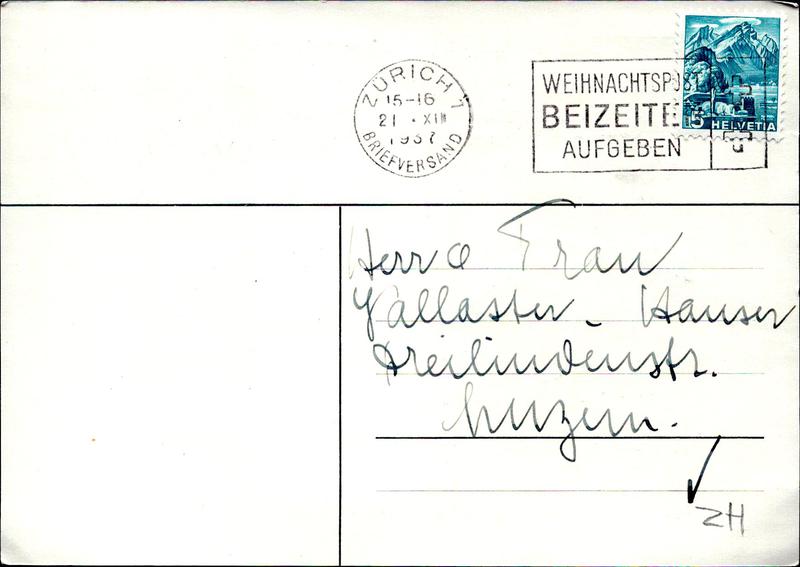 ZÜRICH 1
15-16
21. XII
1937
BRIEFVERSAND
WEIHNACHTSPOST
BEIZEITE
AUFGEBEN
5
HELVETIA
Herr & Frau
Gallaster - Hauser
Dreilindenstr.
Luzern.
ZH